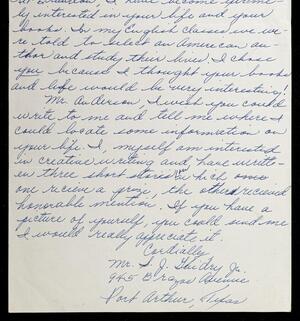 at Evanston. I have become extreme-
ly interested in your life and your
books. In my English classes we we-
re told to select an American au-
thor and study their lives. I chose
you because I thought your books
and life would be very interesting!
Mr. Anderson, I wish you could
write to me and tell me where I
could locate some information on
your life. I, myself am interested
in creative writing and, have writte-
en three short stories in which one
one recieve a prize, the other received
honorable mention. If you have a
picture of yourself, you could send me
I would really appreciate it.
Cordially
Mr. L. J. Guidry Jr.
945 Brazos Avenue
Port Arthur, Texas